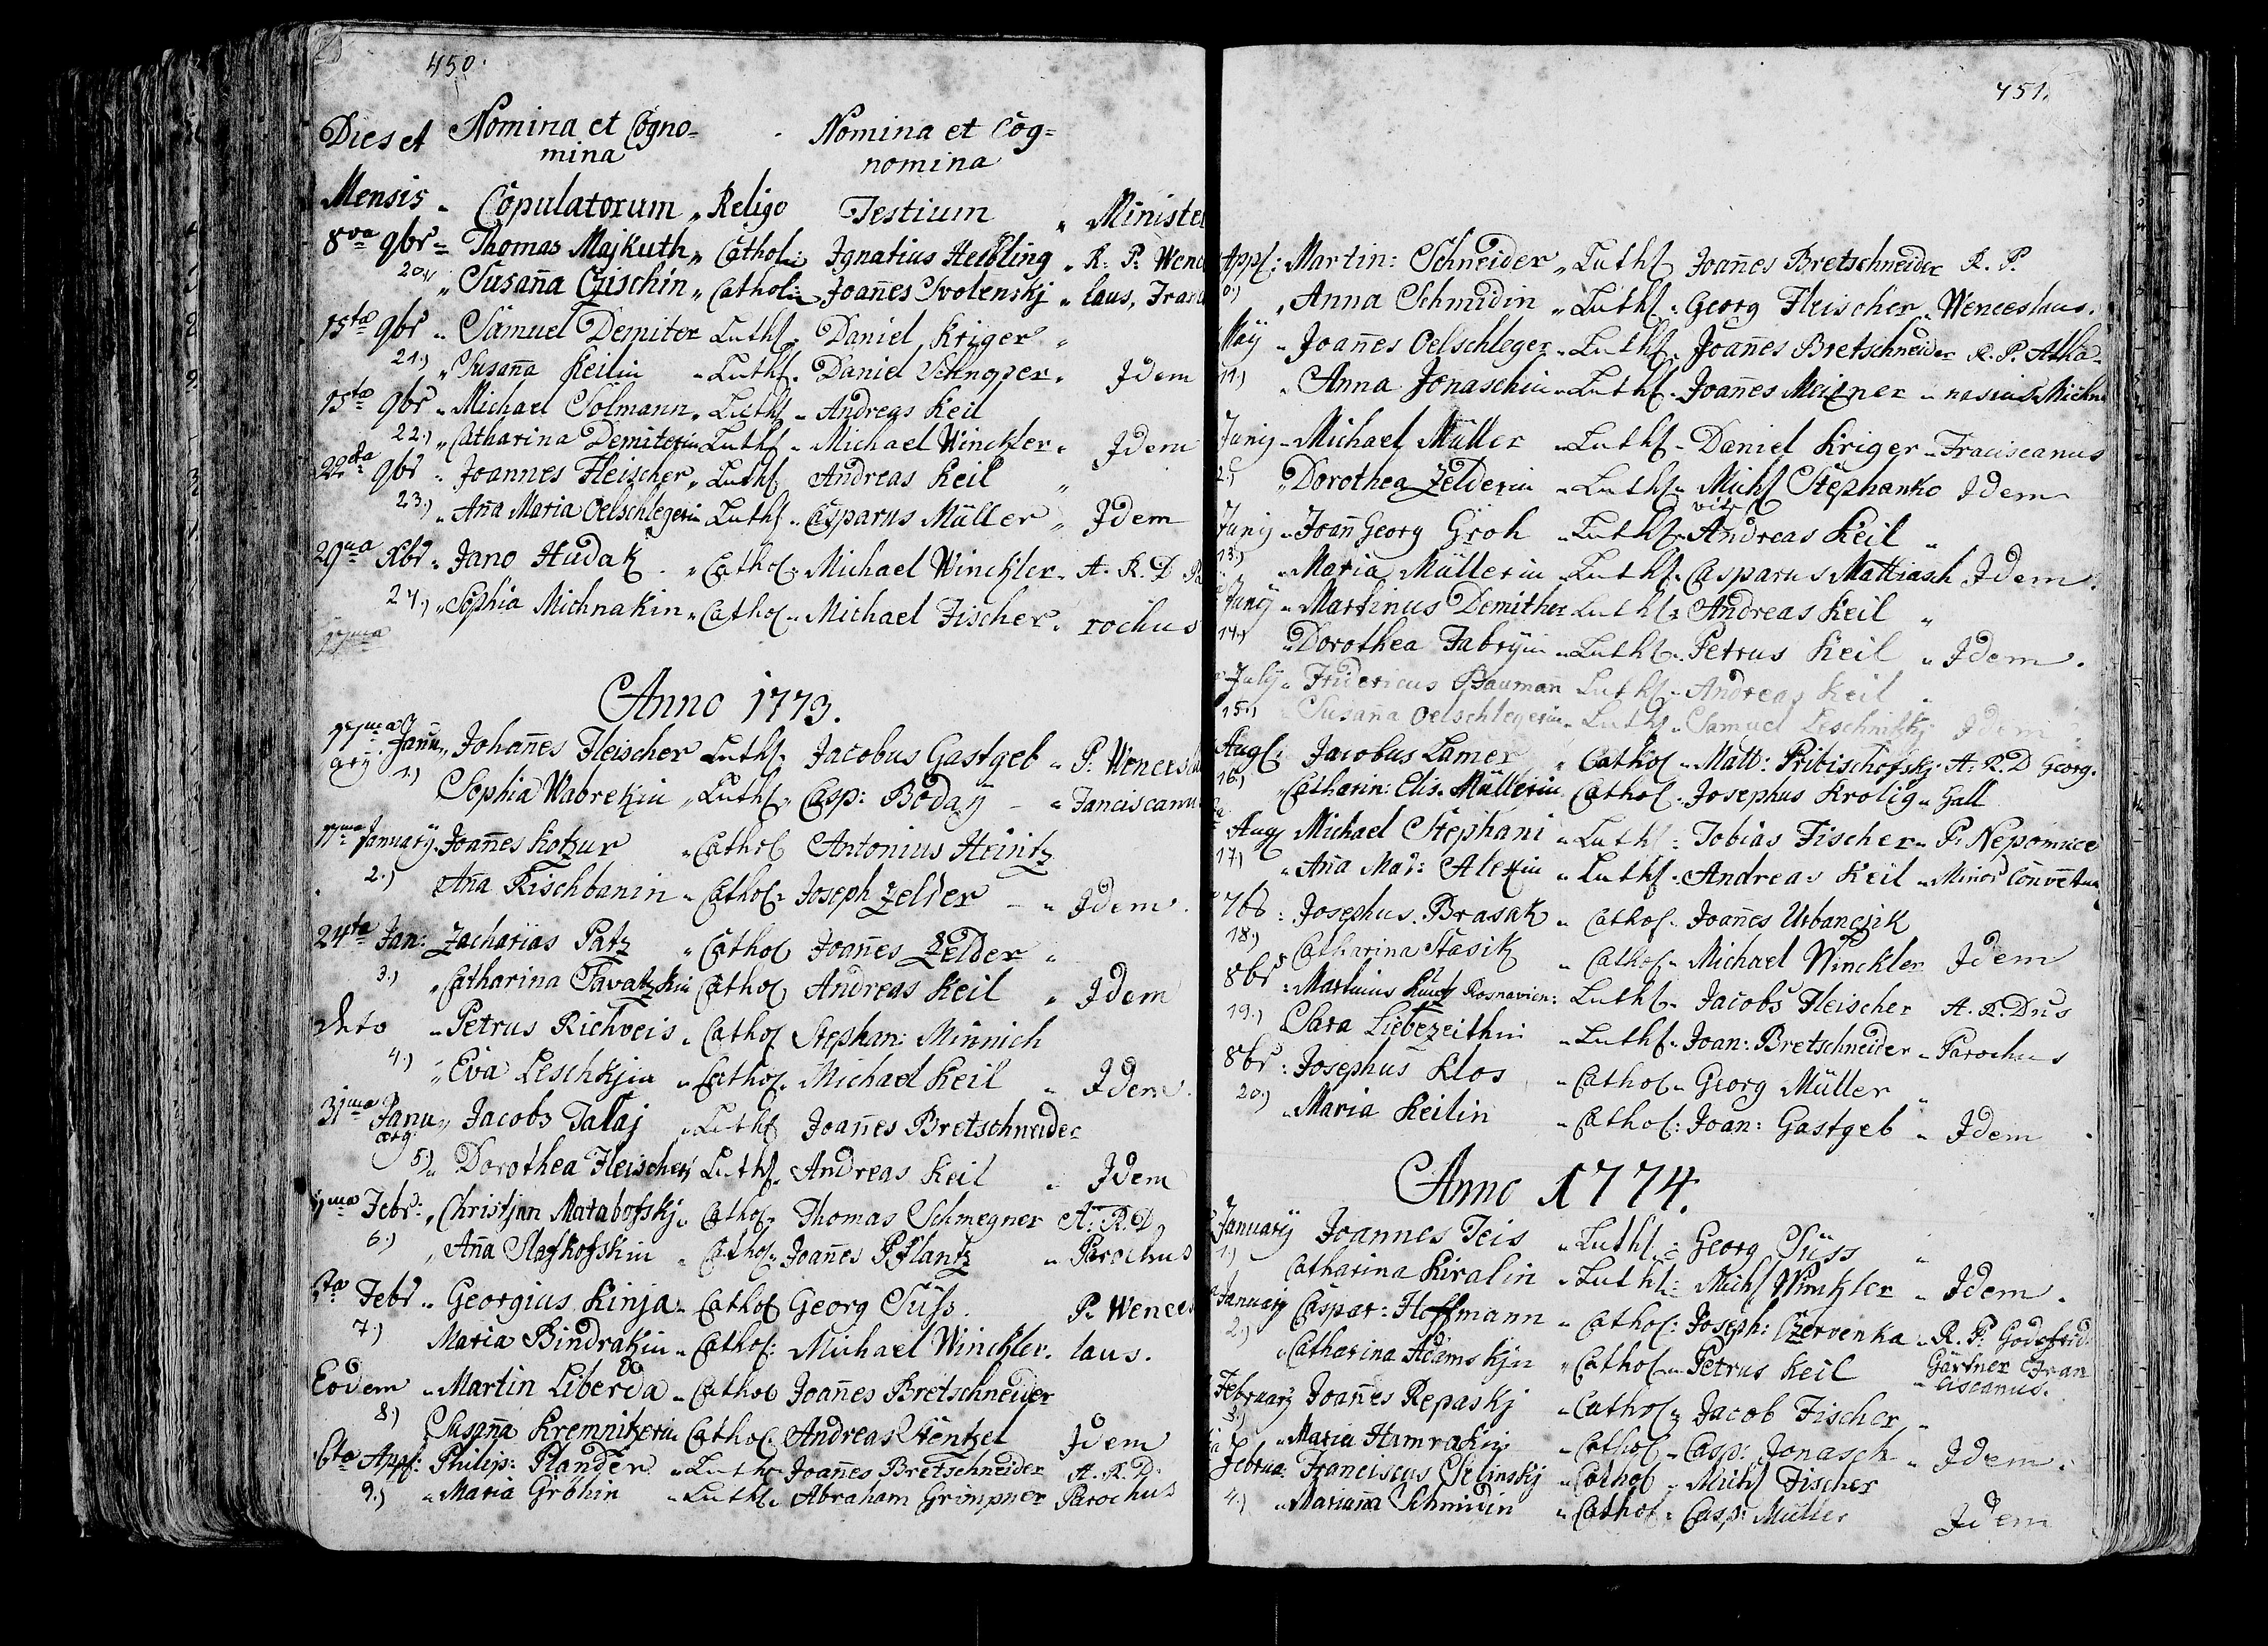 450.
Dies et Nomina et Cogno= Nomina et Cog=
mina nomina
Mensis „ Copulatorum „ Religo Testium „ Minister
8va 9br „ Thomas Majkuth „ Cathol: Ignatius Helbling „ R: P: Wenc
20.) „ Susaña Czischin „ Cathol: Joañes Svolenskj „ laus, Fran
15ta 9br „ Samuel Demiter Luthl „ Daniel Kriger „
21.) „ Susaña Keilin „ Luthl. Daniel „ Idem
15ta 9br „ Michael Solmann „ Luthl „ Andreas Keil
22.) „ Catharina Demiterin Luthl „ Michael Winckler „ Idem
22da 9br „ Joannes Fleischer „ Luthl. Andreas Keil „
23.) „ Aña Maria Oelschlegerin Luthl „ Casparus Müller „ Idem
29na Xbr „ Jano Hudak „ Cathol „ Michael Winckler „ A. R. D Pa
24.) „ Sophia Michnakin „ Cathol „ Michael Fischer „ rochus
Anno 1773.
17ma Janu „ Johañes Fleischer Luthl. Jacobus Gastgeb „ P. Wencesla
ary 1.) Sophia Wabrekin „ Luthl „ Casp: Boday „ Fanciscanu
17ma January Joañes Kotzur „ Cathol Antonius Heintz
2.) Aña Kischbanin „ Cathol „ Joseph Zelder „ Idem.
24ta Jan: Zacharias Patz „ Cathol Joañes Zelder „
3.) „ Catharina Tavatzkin Cathol Andreas Keil „ Idem
Detto „ Petrus Richveis „ Cathol Stephan: Minnich
4.) „ Eva Leschkjin „ Cathol „ Michael Keil „ Idem.
31ma Janu „ Jacobs Talaj „ Luthl Joañes Bretschneider
ary 5.) „ Dorothea Fleischeri Luthl „ Andreas Keil „ Idem
7ma Febr: „ Christjan Matabofskj „ Cathol „ Thomas Schmegner A. R. D,
6.) „ Aña Slafkofskin „ Cathol „ Joañes Pflantz „ Parochus
Febr „ Georgius Kinja „ Cathol Georg Süss P. Wences
7.) Maria Bindrakin „ Cathol: Michael Winckler. laus.
Eodem „ Martin Liberda „ Cathol Joañes Bretschneider
8.) Susaña Kremnitzerin Cathol Andreas Stentzel Idem
6ta Appl: Philip: Plander „ Luthl „ Joañes Bretschneider A. R. D.
9.) „ Maria Gröhin „ Luthl „ Abraham Grimpner Parochus
451.
Appl: Martin: Schneider „ Luthl Joañes Bretschneider R. P.
0.) „ Anna Schmidin „ Luthl „ Georg Fleischer „ Wenceslaus.
May „ Joañes Oelschleger „ Luthl „ Joañes Bretschneider R. P. Atha=
11.) „ Anna Jonaschin „ Luthl „ Joañes Meixner „ nasius Michna
Junij „ Michael Müller „ Luthl „ Daniel Kriger „ Fraciscanus
2.) „ Dorothea Zelderin „ Luthl „ Michl Stephanko Idem
vits
Junij „ Joañ Georg Groh „ Luthl „ Andreas Keil „
13.) „ Maria Müllerin „ Luthl „ Casparus Mattiasch Idem.
Junij „ Martinus Demither Luthl „ Andreas Keil „
14.) „ Dorothea Fabryin „ Luthl „ Petrus Keil „ Idem.
July „ Fridericus Baumañ Luthl „ Andreas Keil „
15.) „ Susaña Oelschlegerin „ Luthl „ Samuel Leschnitzkj Idem
Augl: Jacobus Lamer „ Cathol „ Matt: Pribischofskj „ A. R. D Georg.
16.) „ Catharin: Elis. Müllerin Cathol „ Josephus Krolig „ Gall
Augl Michael Stephani „ Luthl „ Tobias Fischer „ P. Nepomuce
17.) „ Aña Mar: Alexin „ Luthl „ Andreas Keil „ Minor Conventua
7br : Josephus Brasak „ Cathol „ Joañes Urbancjik
18.) Catharina Stasik „ Cathol „ Michael Winckler Idem
8br : Martinus Rosnavien: Luthl „ Jacobs Fleischer A. R. Dñs
19.) Sara Liebezeithin „ Luthl „ Joan: Bretschneider „ Parochus
8br : Josephus Klos „ Cathol „ Georg Müller „
20.) „ Maria Keilin „ Cathol: Joan: Gastgeb „ Idem
Anno 1774.
January Joannes Teis „ Luthl „ Georg Süss „
1.) Catharina Kiralin „ Luthl: Michl Winckler „ Idem.
January Caspar: Hoffmann „ Cathol: Joseph: Czervenka „ R. P. Godefrid.
2.) „ Catharina Adamskjn „ Cathol „ Petrus Keil Gärtner Fran
ciscanus.
February Joañes Repaskj „ Cathol „ Jacob Fischer „
3.) „ Maria Hamrakin „ Cathol „ Casp: Jonasch „ Idem.
Februa: Franciscus Selinskj „ Cathol „ Michl Fischer
4.) „ Mariaña Schmidin „ Cathol „ Casp: Müller Idem